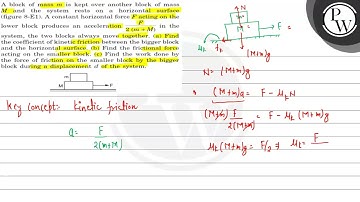 A block of mass m is kept over another block of mass
M and the system rests on a horizontal surface
(figure 8-E1). A constant horizontal force F acting on the
lower block produces an acceleration F / 2(m + M) in the
system, the two blocks always move together. (a) Find
the coefficient of kinetic friction between the bigger block
and the horizontal surface. (b) Find the frictional force
acting on the smaller block. (c) Find the work done by
the force of friction on the smaller block by the bigger
block during a displacement d of the system.
m
M
F
Key concept:- Kinetic friction
a = F / 2(m+M)
N
(M+m)g
N = (M+m)g
(M+m)a = F - μkN
(M+m) F / 2(M+m) = F - μk(M+m)g
μk(M+m)g = F/2 ⇒ μk = F
PW